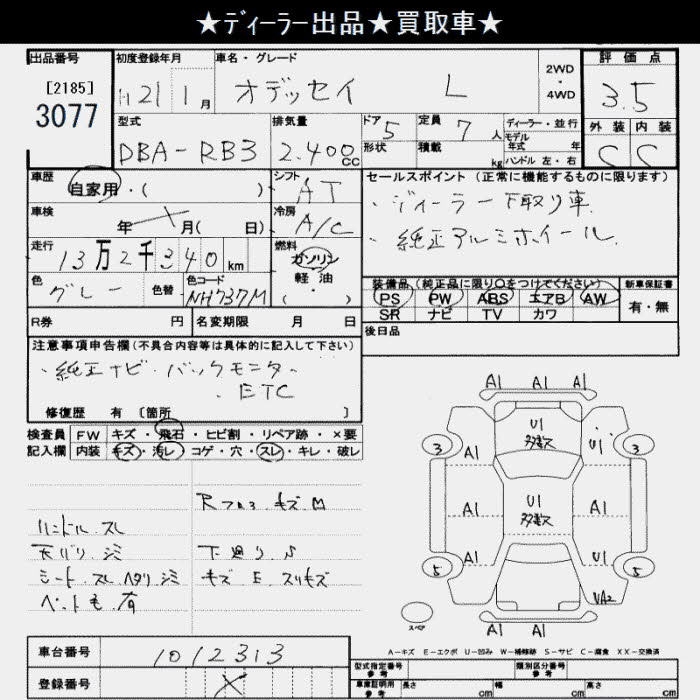 ★ディーラー出品★買取車★
出品番号
[2185]
3077
初度登録年月
H 21 1 月
車名・グレード
オデッセイ L
2WD
・
4WD
評価点
3.5
外装 内装
C C
型式
DBA-RB3
排気量
2.400 CC
ドア 5
形状
定員 7 人
積載 kg
ディーラー・並行
モデル
年式 年
ハンドル 左・右
車歴
自家用・( )
シフト
AT
セールスポイント (正常に機能するものに限ります)
・ディーラー下取り車
・純正アルミホイール
車検
年 月( 日)
冷房
A/C
走行
13万2千340km
燃料
ガソリン
軽油
・
( )
色
グレー
色替
色コード
NH737M
装備品(純正品に限り○をつけてください)
PS PW ABS エアB AW
SR ナビ TV カワ
新車保証書
有・無
R券 円
名変期限 月 日
後日品
注意事項申告欄(不具合内容等は具体的に記入して下さい)
・純正ナビ・バックモニター
・ETC
修復歴 有 [箇所 ]
検査員
記入欄
FW キズ・飛石・ヒビ割・リペア跡・×要
内装 キズ・汚レ・コゲ・穴・スレ・キレ・破レ
ハンドル.スレ
天バリ.シミ
シート.スレ.ヘタリ.シミ
ペット毛.有
キズ
下廻り.S
キズ E.スリキズ
A1 A1 A1
U1
多数
U1
3
A1 A1
3
U1
多数
A1 A1
A1 U1
5 5
UA2
A1 A1
スペア
A-キズ E-エクボ U-凹み W-補修跡 S-サビ C-腐食 XX-交換済
車台番号
1012313
登録番号
型式指定番号
参考
類別区分番号
参考
車庫証明用
参考
長さ cm
幅 cm
高さ cm